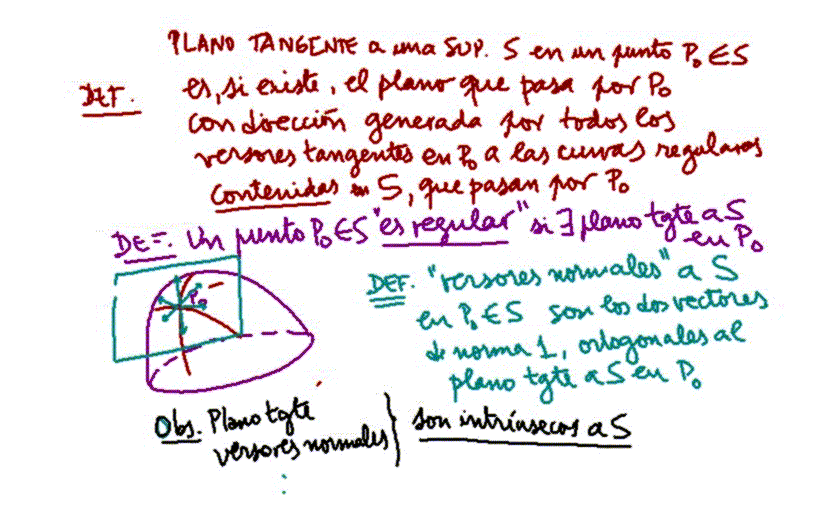 PLANO TANGENTE a una SUP. S en un punto P₀ ∈ S
DEF. es, si existe, el plano que pasa por P₀
con dirección generada por todos los
versores tangentes en P₀ a las curvas regulares
contenidas en S, que pasan por P₀
DEF. Un punto P₀ ∈ S "es regular" si ∃ plano tgte a S
en P₀
P₀
DEF. "versores normales" a S
en P₀ ∈ S son los dos vectores
de norma 1, ortogonales al
plano tgte a S en P₀
Obs. Plano tgte
versores normales } son intrínsecos a S